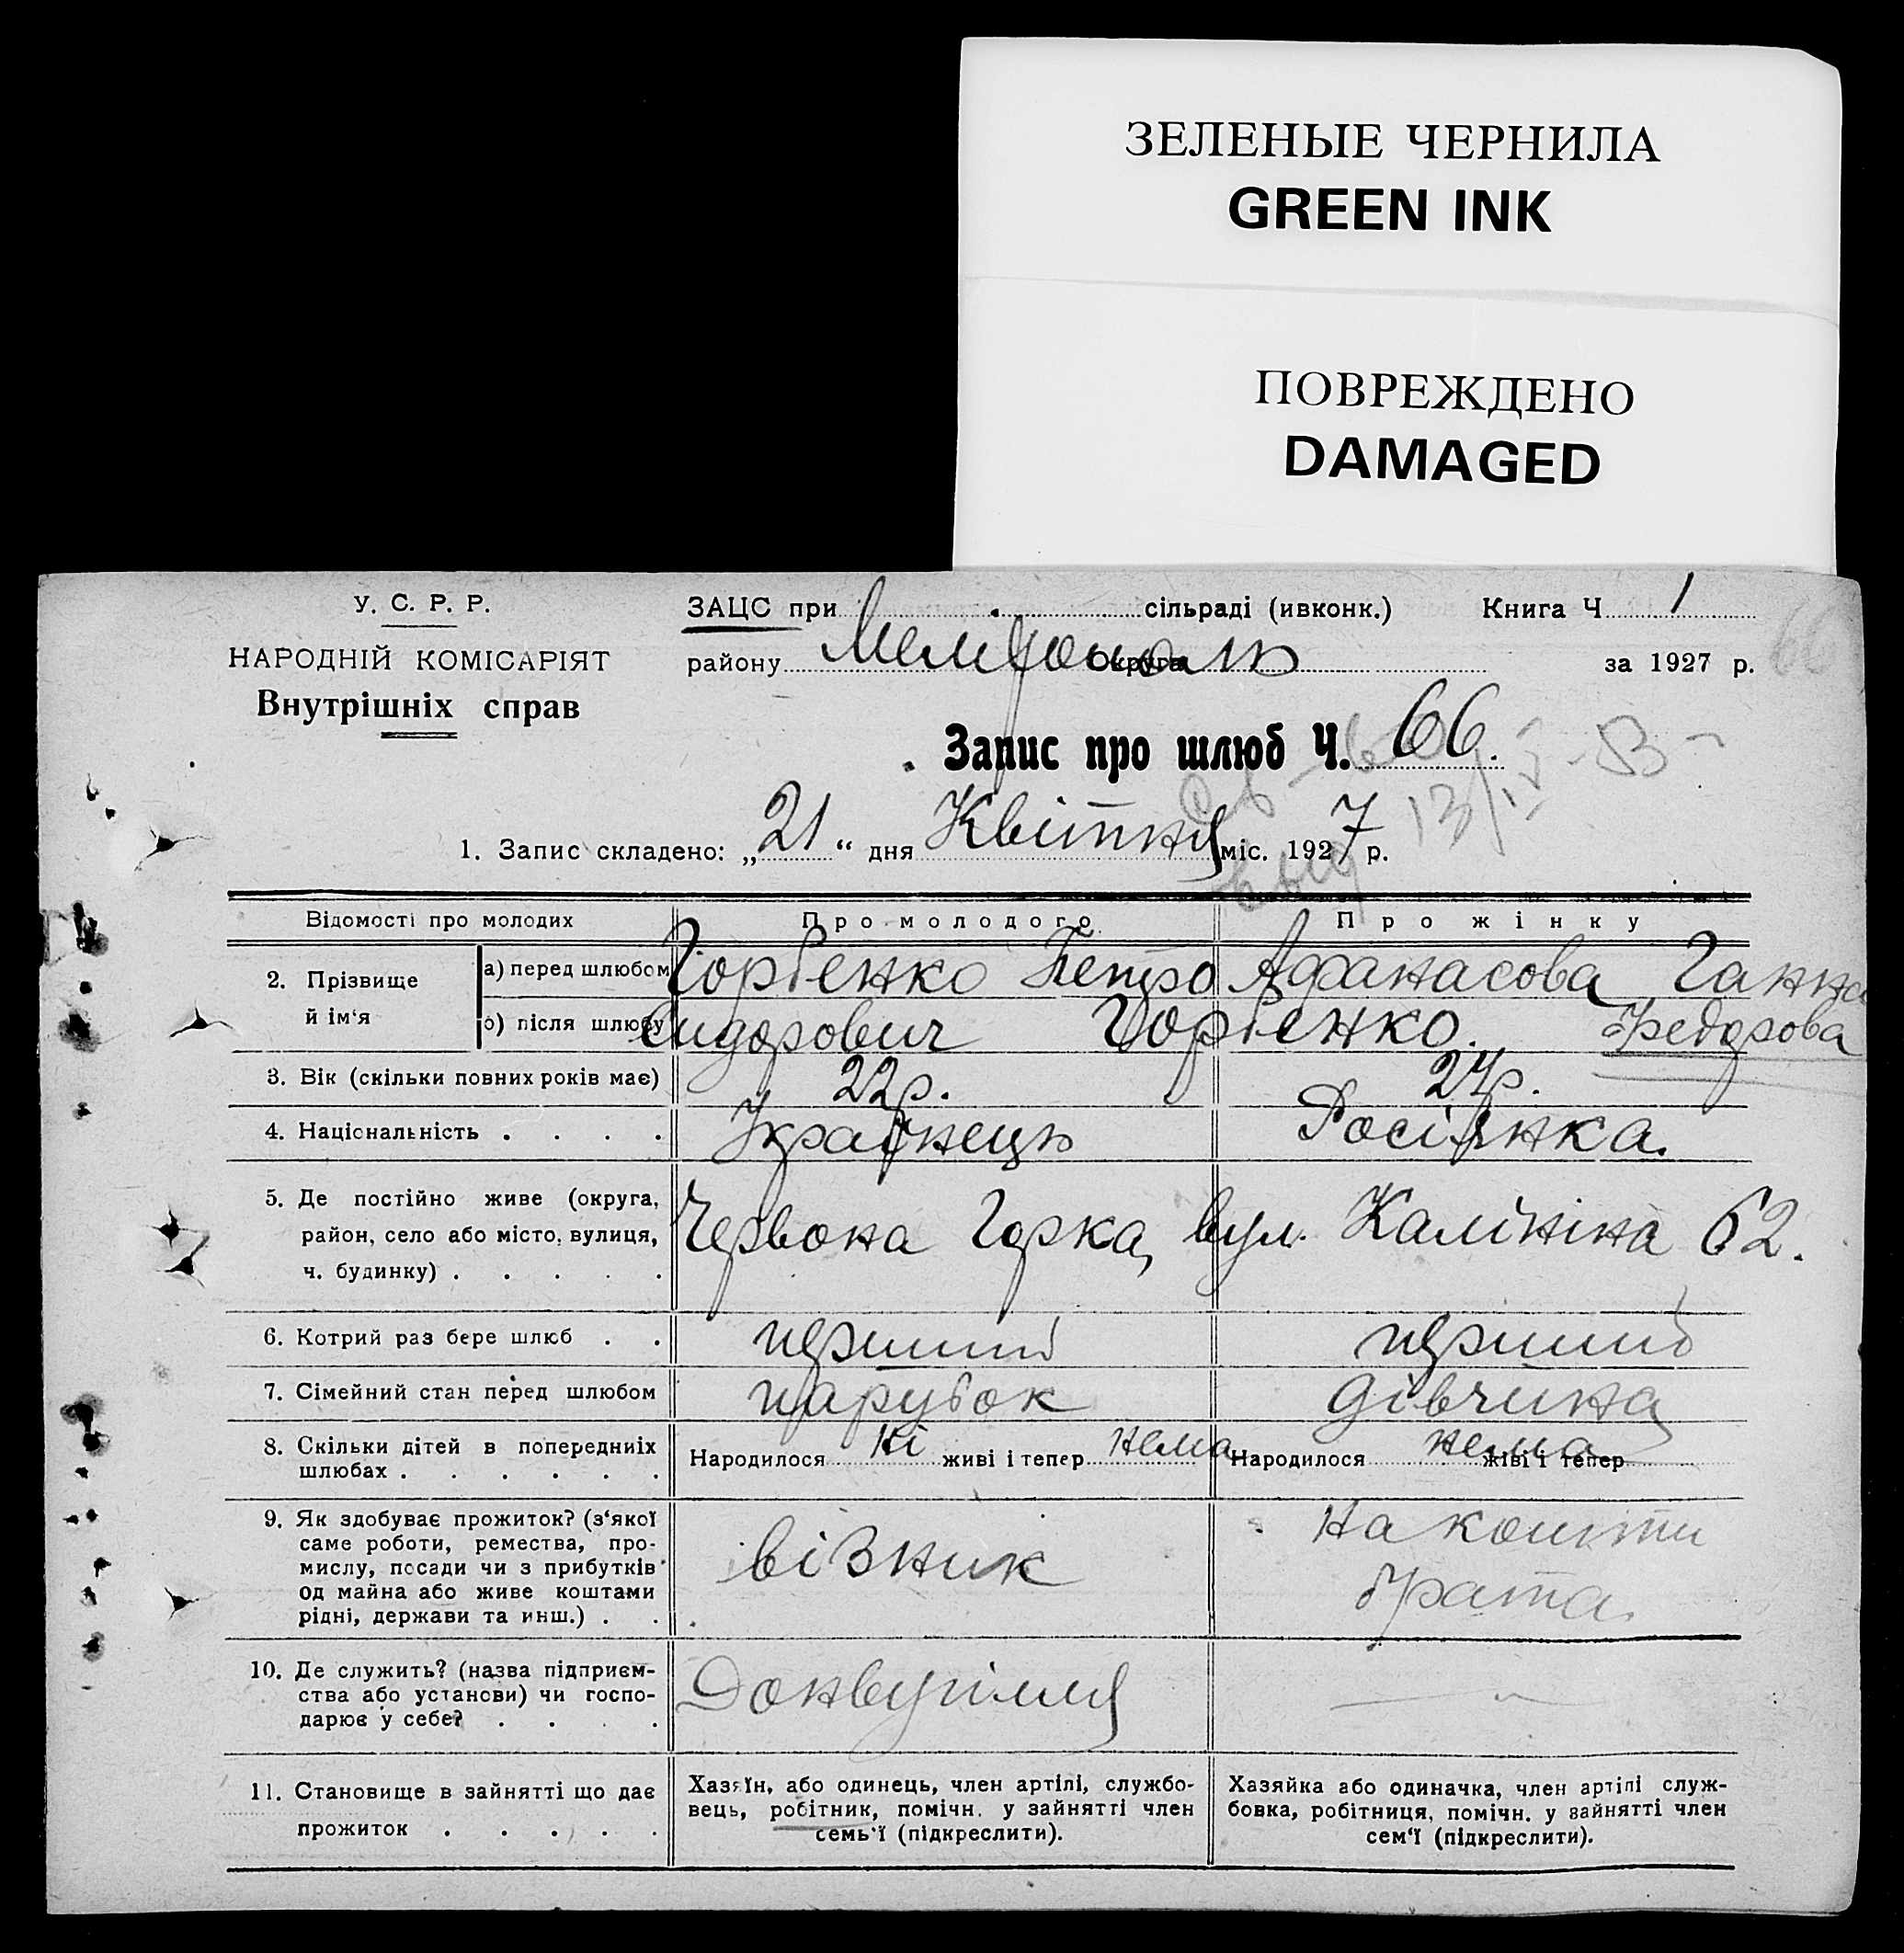 ЗЕЛЕНЫЕ ЧЕРНИЛА
GREEN INK
ПОВРЕЖДЕНО
DAMAGED
У. С. Р. Р.
НАРОДНІЙ КОМІСАРІЯТ
Внутрішніх справ
ЗАЦС при сільраді (ивконк.) Книга Ч 1
району Округа за 1927 р.
66
Запис про шлюб Ч. 66.
1. Запис складено: „21“ дня Квітня міс. 1927 р.
Відомості про молодих Про молодого Про жінку
2. Прізвище й ім'я
а) перед шлюбом Горбенко Петро Афанасова Ганна
б) після шлюбу Сидорович Горбенко. Федорова
3. Вік (скільки повних років має) 22р. 24р.
4. Національність . . . . Українець Росіянка.
5. Де постійно живе (округа,
район, село або місто, вулиця, Червона Горка, вул. Калініна 62.
ч. будинку) . . . . .
6. Котрий раз бере шлюб . . перший перший
7. Сімейний стан перед шлюбом парубок дівчина
8. Скільки дітей в попередниіх Народилося ні живі і тепер нема Народилося нема живі і тепер
шлюбах . . . . . .
9. Як здобуває прожиток? (з'якої
саме роботи, ремества, про-
мислу, посади чи з прибутків
од майна або живе коштами
рідні, держави та инш.) . .
візник
на кошти
брата.
10. Де служить? (назва підприєм-
ства або установи) чи госпо-
дарює у себе? . . . .
Донвугілля
—
11. Становище в зайнятті що дає
прожиток . . . . .
Хазяїн, або одинець, член артілі, службо-
вець, робітник, помічн. у зайнятті член
семь'ї (підкреслити).
Хазяйка або одиначка, член артілі служ-
бовка, робітниця, помічн. у зайнятті член
сем'ї (підкреслити).